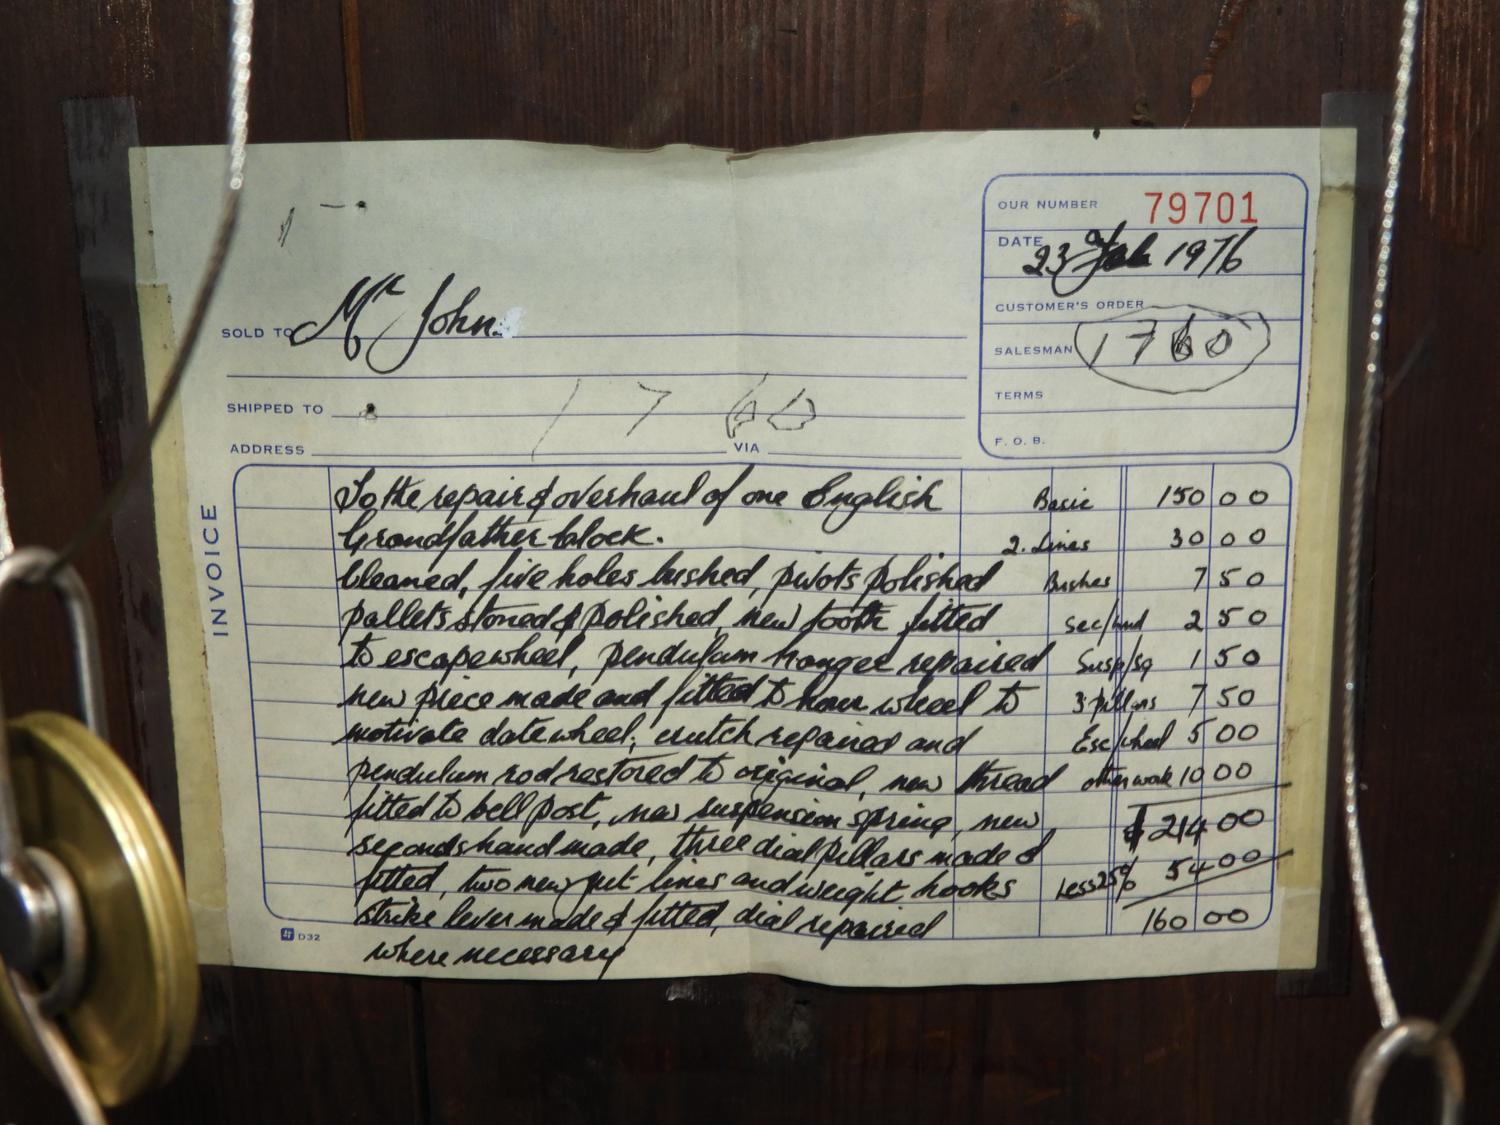 OUR NUMBER 79701
DATE 23 Feb 1976
CUSTOMER'S ORDER
SOLD TO Mr John
SALESMAN 1760
TERMS
SHIPPED TO 1760
F. O. B.
ADDRESS VIA
INVOICE
To the repair & overhaul of one English Basic 150 00
Grandfather Clock. 2. Lines 30 00
Cleaned, five holes bushed, pivots polished Bushes 7 50
pallets stoned & polished, new tooth fitted sec/hnd 2 50
to escapewheel, pendulum hanger repaired Susp/sg 1 50
new piece made and fitted to hour wheel to 3 pillars 7 50
motivate datewheel; crutch repaired and Esc/wheel 5 00
pendulum rod restored to original, new thread other work 10 00
fitted to bell post, new suspension spring, new $214 00
seconds hand made, three dial pillars made &
fitted, two new gut lines and weight hooks Less 25% 54 00
strike lever made & fitted, dial repaired 160 00
where necessary
D32